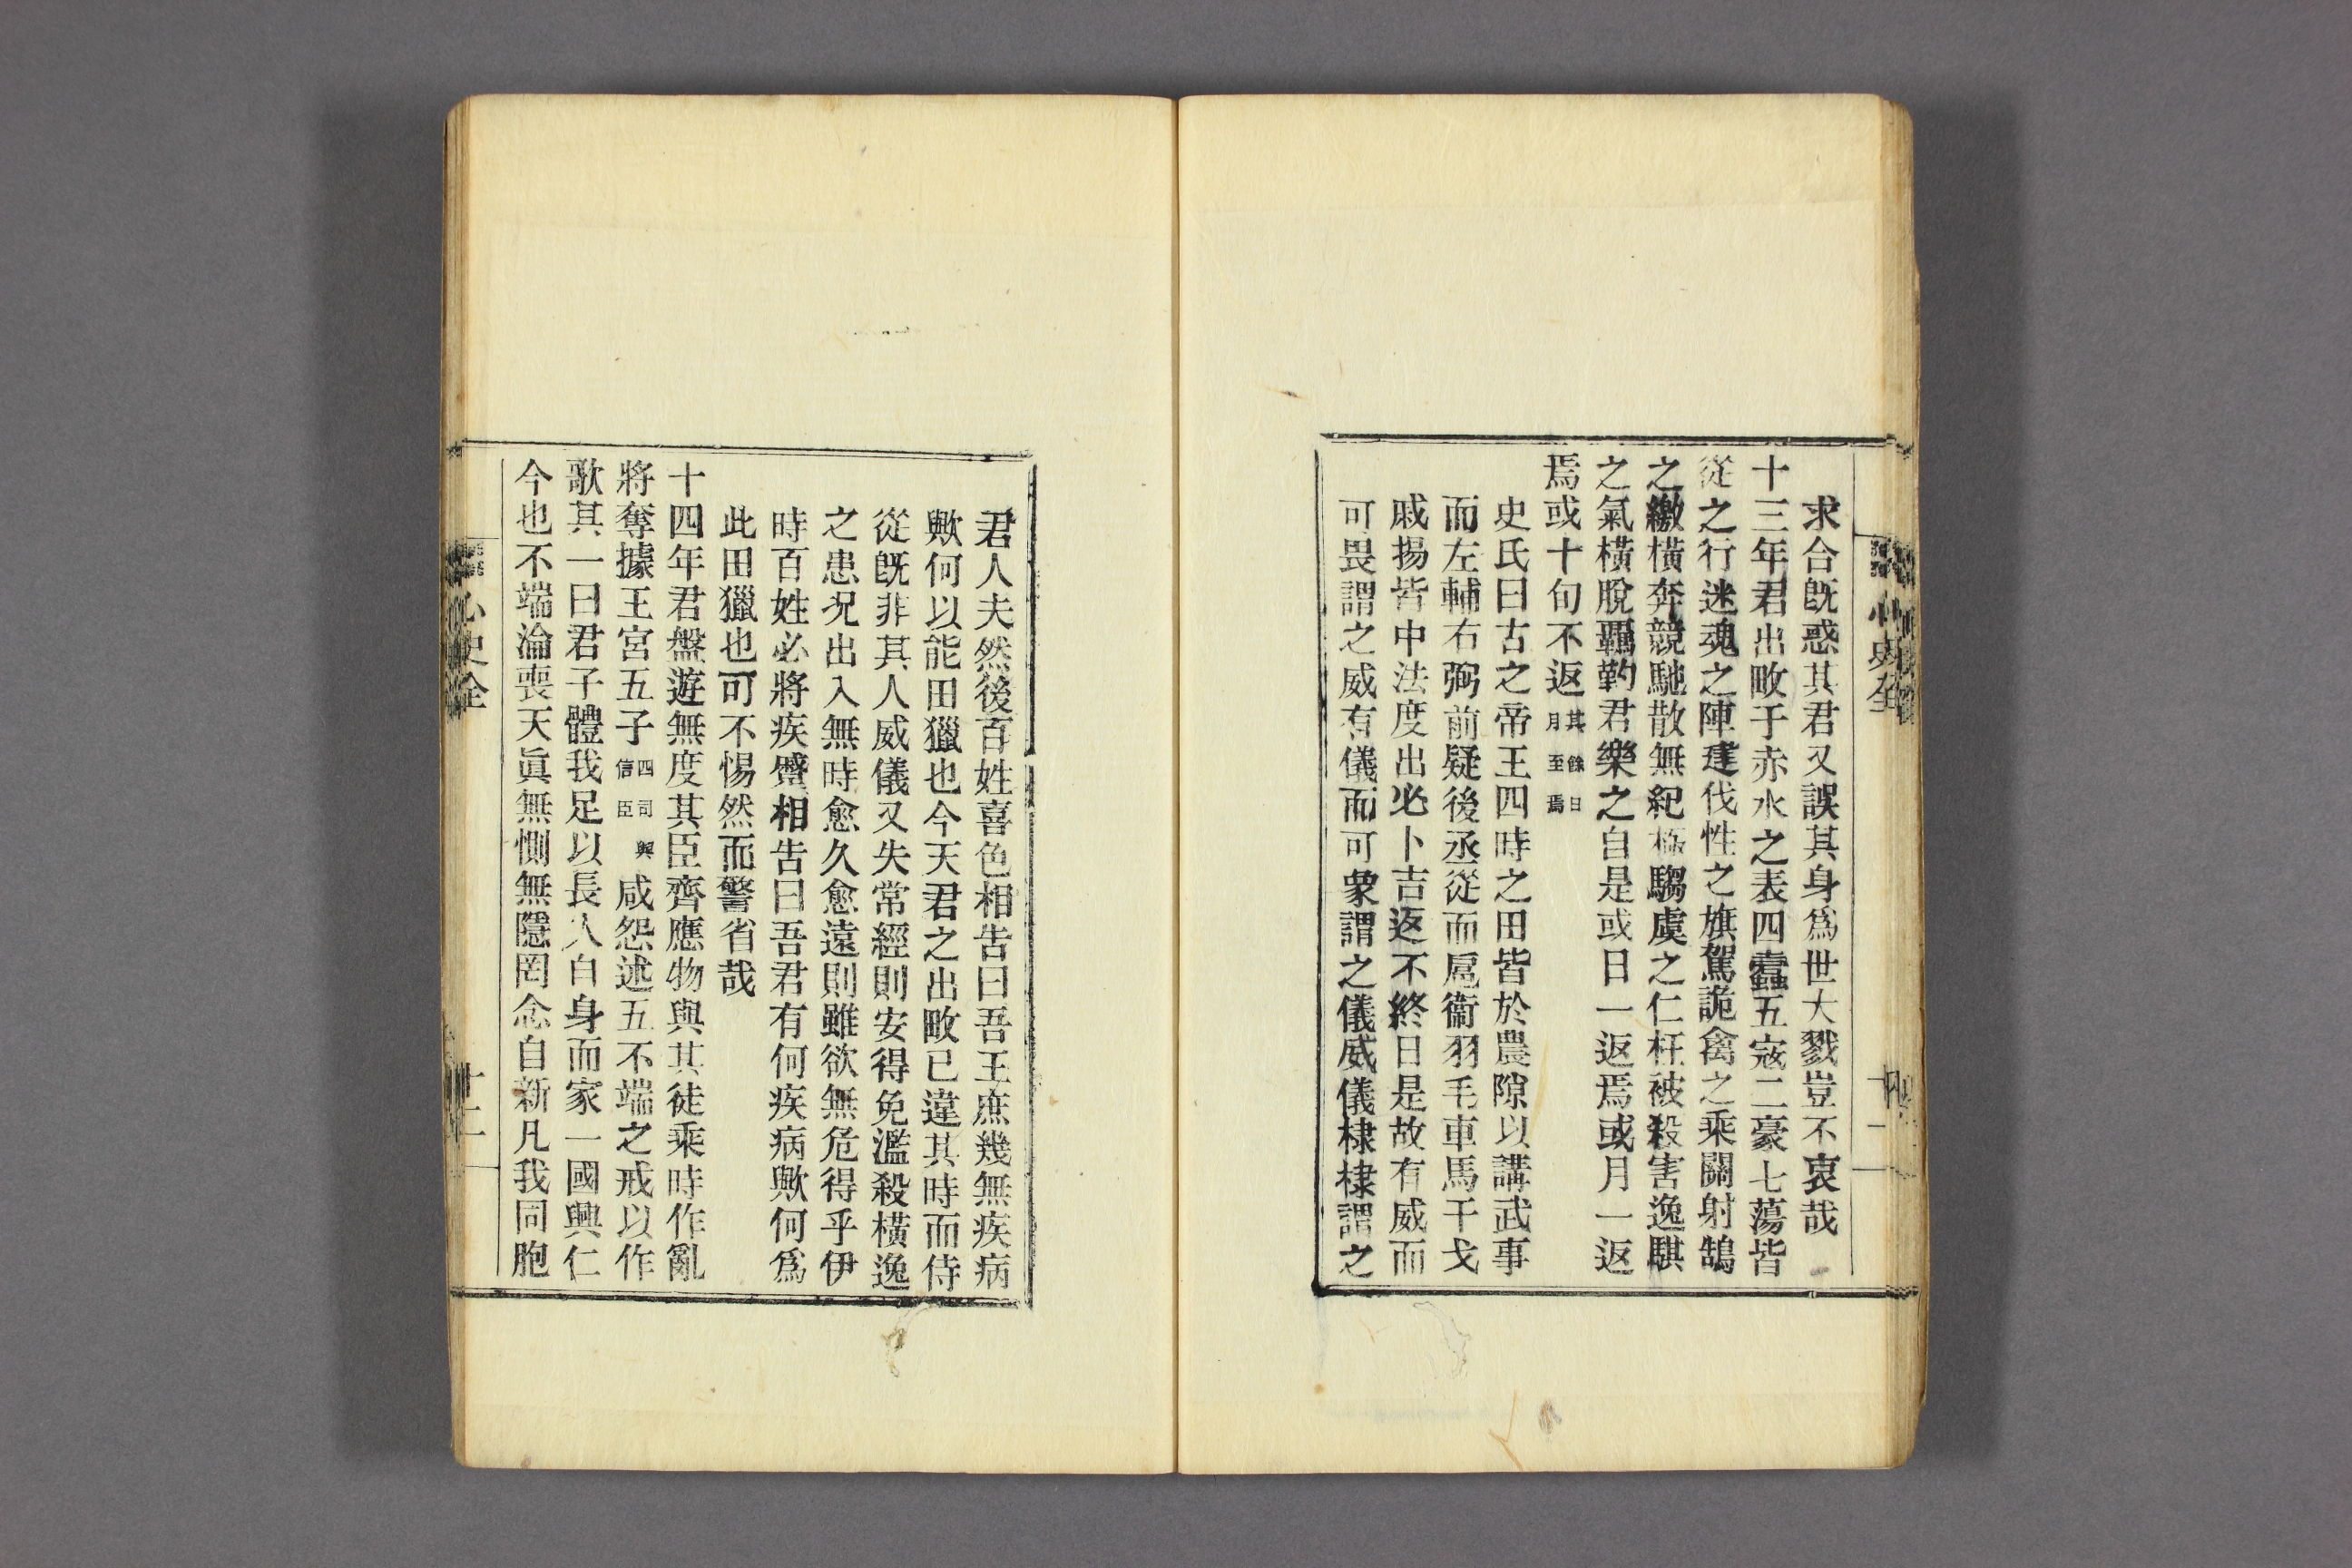 求合旣惑其君又誤其身爲世大戮豈不哀哉
十三年君出畋于赤水之表四蠹五寇二豪七蕩皆
從之行迷魂之陣建伐性之旗駕詭禽之乘關射鵠
之繳橫奔競馳散無紀極騶虞之仁枉被殺害逸騏
之氣橫脫羈靮君樂之自是或日一返焉或月一返
焉或十旬不返其餘日月至焉
史氏曰古之帝王四時之田皆於農隙以講武事
而左輔右弼前疑後丞從而扈衞羽毛車馬干戈
戚揚皆中法度出必卜吉返不終日是故有威而
可畏謂之威有儀而可象謂之儀威儀棣棣謂之
君人夫然後百姓喜色相告曰吾王庶幾無疾病
歟何以能田獵也今天君之出畋已違其時而侍
從旣非其人威儀又失常經則安得免濫殺橫逸
之患况出入無時愈久愈遠則雖欲無危得乎伊
時百姓必將疾蹙相告曰吾君有何疾病歟何爲
此田獵也可不惕然而警省哉
十四年君盤遊無度其臣齊應物與其徒乘時作亂
將奪據王宮五子四司與信臣咸怨述五不端之戒以作
歌其一曰君子體我足以長人自身而家一國興仁
今也不端淪喪天眞無惻無隱罔念自新凡我同胞
心史全
十二